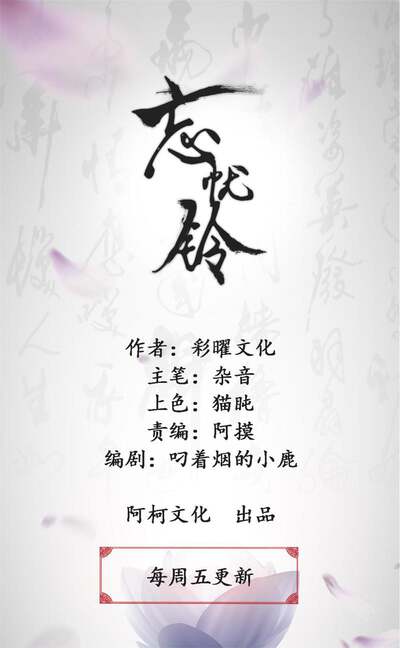 忘忧铃
作者：彩曜文化
主笔：杂音
上色：猫盹
责编：阿摸
编剧：叼着烟的小鹿
阿柯文化 出品
每周五更新